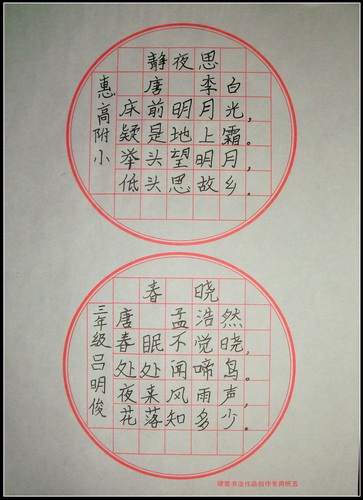 静夜思
唐 李白
床前明月光，
疑是地上霜。
举头望明月，
低头思故乡。
惠高附小
春晓
唐 孟浩然
春眠不觉晓，
处处闻啼鸟。
夜来风雨声，
花落知多少。
三年级吕明俊
硬笔书法作品创作专用纸五